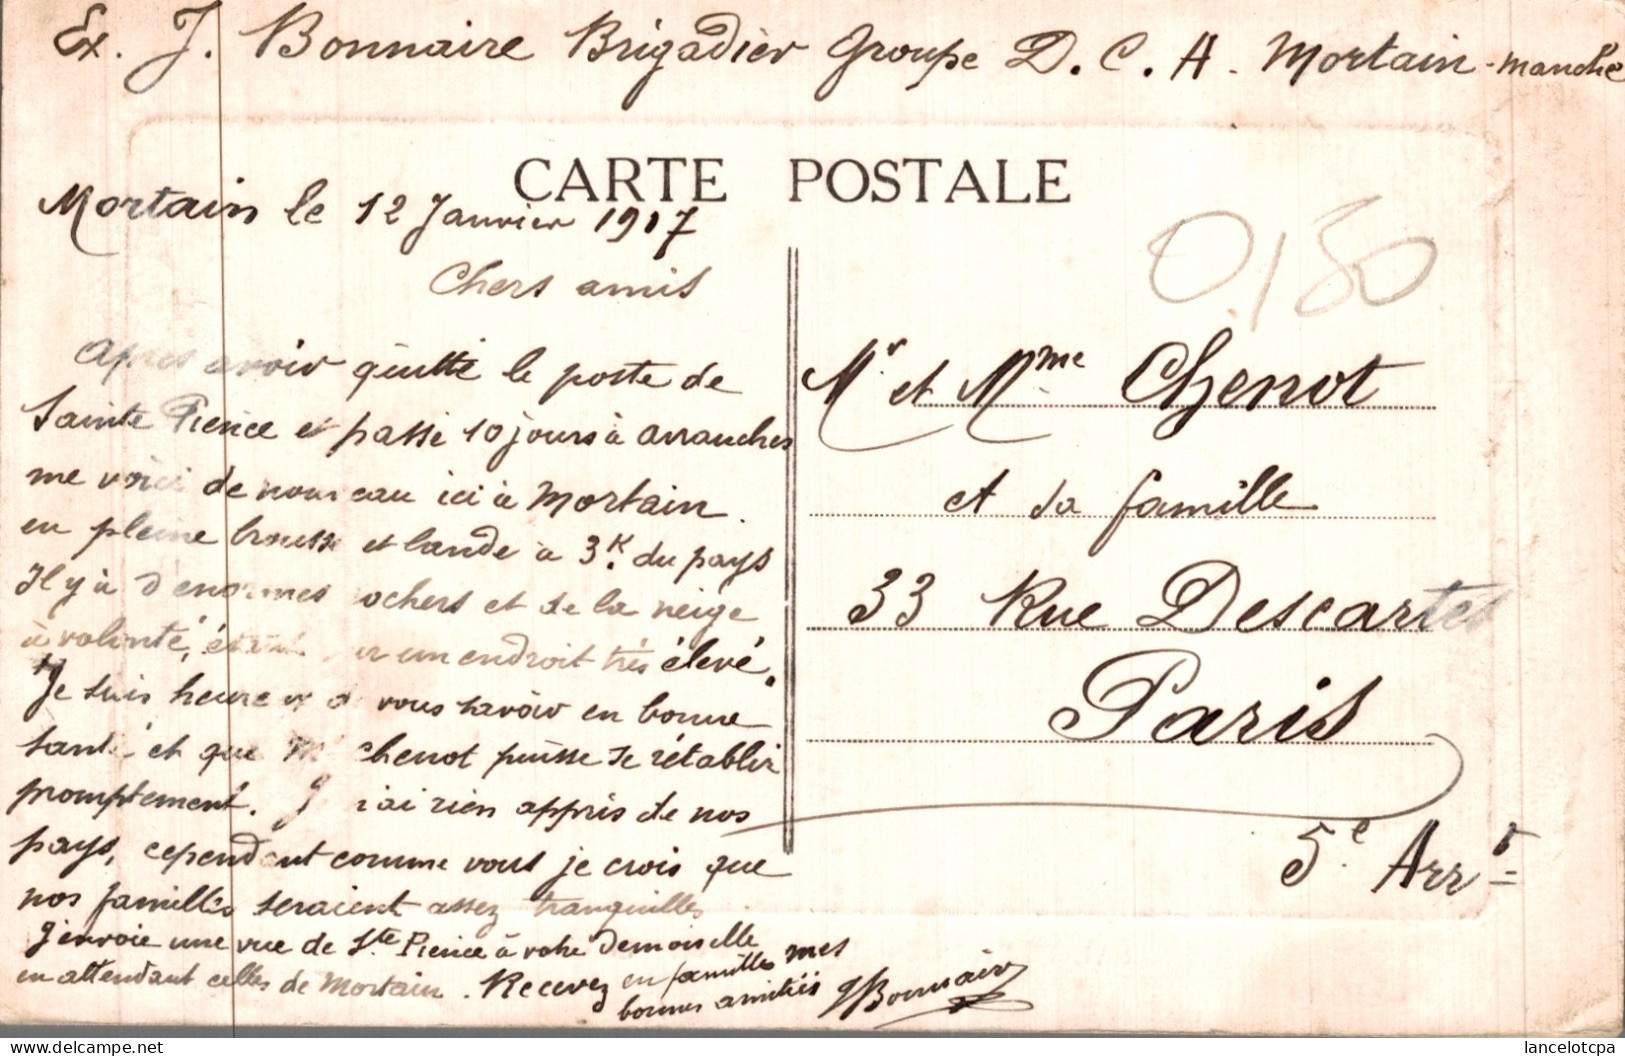 Ex. J. Bonnaire Brigadier Groupe D. C. A. Mortain - Manche
CARTE POSTALE
Mortain le 12 Janvier 1917
Chers amis
Après avoir quitté le poste de
Sainte Pience et passé 10 jours à Avranches
me voici de nouveau ici à Mortain
en pleine brousse et lande à 3K. du pays
Il y à d'enormes rochers et de la neige
à volonté, étant sur un endroit très élevé.
Je suis heureux de vous savoir en bonne
santé et que Mr Chenot puisse se rétablir
promptement. Je n'ai rien appris de nos
pays, cependant comme vous je crois que
nos familles seraient assez tranquilles
J'envoie une vue de Ste Pience à votre Demoiselle
en attendant celles de Mortain. Recevez en familles mes
bonnes amitiés JBonnaire
0,50
Mr et Mme Chenot
et sa famille
33 Rue Descartes
Paris
5e Arrt
lancelotcpa